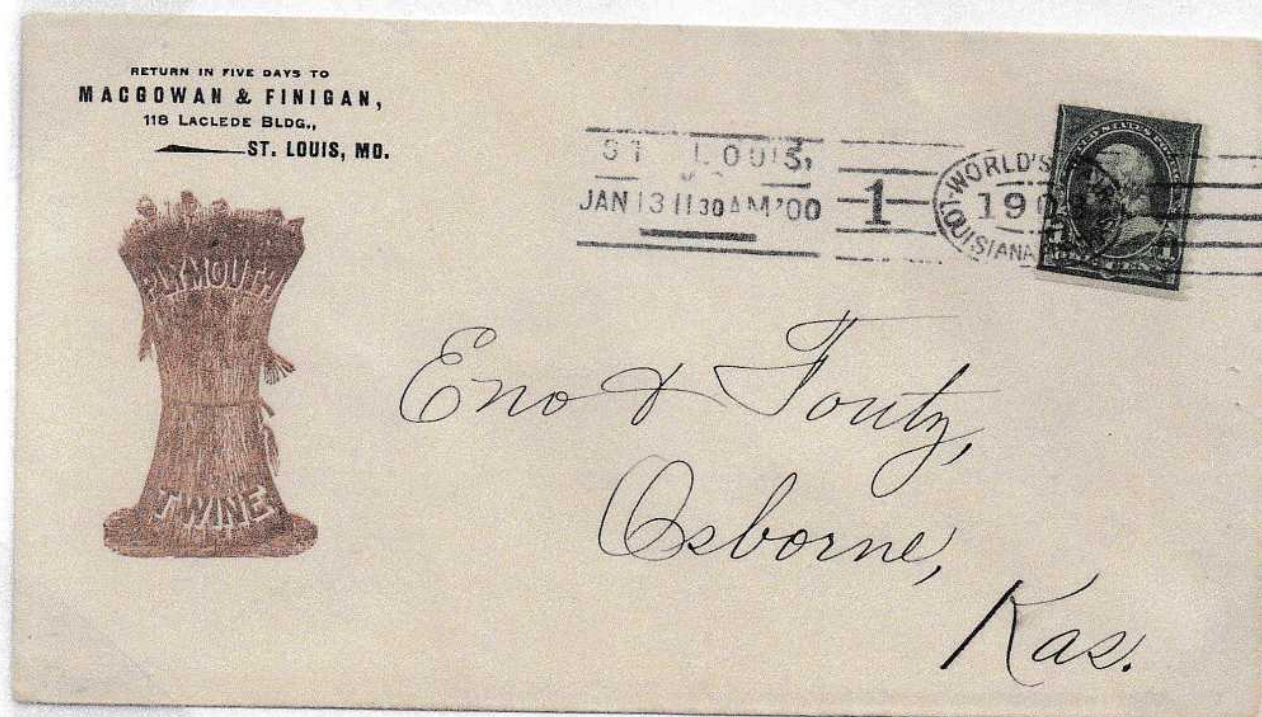 RETURN IN FIVE DAYS TO
MACGOWAN & FINIGAN,
118 LACLEDE BLDG.,
ST. LOUIS, MO.
PLYMOUTH
TWINE
ST LOUIS,
JAN 13 11 30 AM '00
1
WORLD'S
190
LOUISIANA
UNITED STATES
1
Eno & Foutz,
Osborne,
Kas.